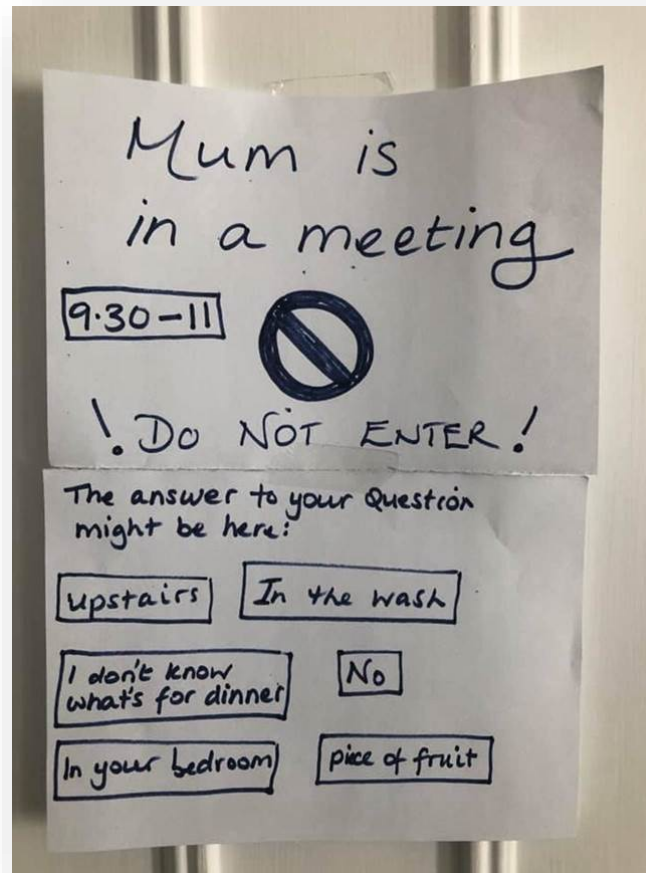 Mum is
in a meeting
9.30-11
! DO NOT ENTER!
The answer to your Question
might be here:
upstairs In the wash
I don't know
what's for dinner No
In your bedroom piece of fruit